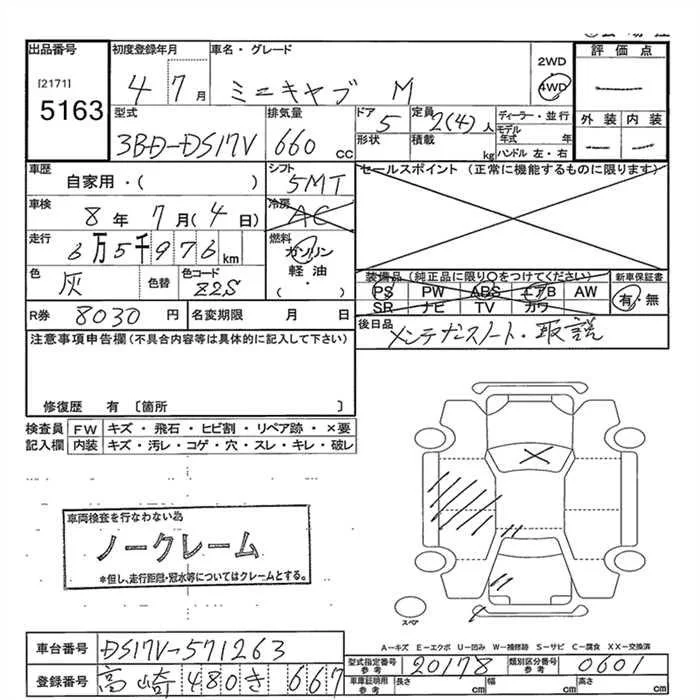 出品番号 初度登録年月 車名・グレード 2WD 評価点
[2171] 4 7月 ミニキャブ M 4WD —
5163 型式 排気量 ドア 定員 ディーラー・並行 外装 内装
3BD-DS17V 660 CC 5 2(4)人 モデル年式 年 — —
形状 積載 kg ハンドル 左・右
車歴 シフト セールスポイント (正常に機能するものに限ります)
自家用・( ) 5MT
車検 8年 7月(4日) 冷房 AC
走行 6万5千976km 燃料 ガソリン
軽油・( )
色 灰 色替 色コード Z2S
装備品(純正品に限り○をつけてください) 新車保証書
PS PW ABS エアB AW 有・無
SR ナビ TV カワ
R券 8030円 名変期限 月 日
後日品 メンテナンスノート・取説
注意事項申告欄(不具合内容等は具体的に記入して下さい)
修復歴 有 〔箇所 〕
検査員 FW キズ・飛石・ヒビ割・リペア跡・×要
記入欄 内装 キズ・汚レ・コゲ・穴・スレ・キレ・破レ
車両検査を行なわない為
ノークレーム
*但し、走行距離・冠水等についてはクレームとする。
スペア
A―キズ E―エクボ U―凹み W―補修跡 S―サビ C―腐食 XX―交換済
車台番号 DS17V-571263
型式指定番号 参考 20178 類別区分番号 参考 0601
登録番号 高崎 480 き 667
車庫証明用 参考 長さ cm 幅 cm 高さ cm